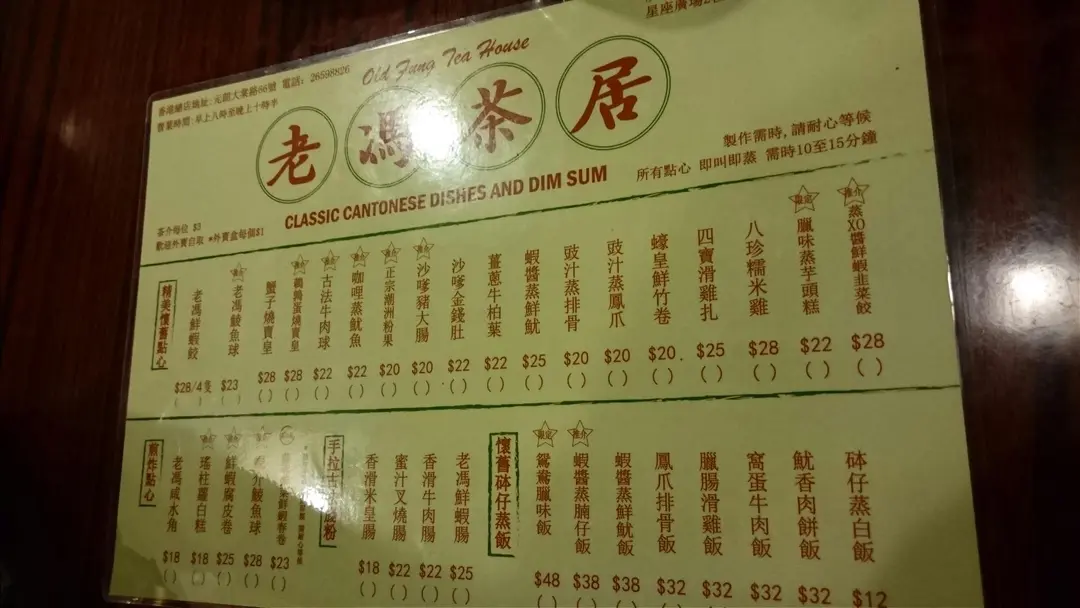 星座廣場
香港總店地址:元朗大棠路66號 電話: 26598826
營業時間:早上八時至晚上十時半
Old Fung Tea House
老馮茶居
CLASSIC CANTONESE DISHES AND DIM SUM
製作需時,請耐心等候
所有點心 即叫即蒸 需時10至15分鐘
茶介每位 $3
歡迎外賣自取 *外賣盒每個$1
精美懷舊點心
老馮鮮蝦餃 $28/4隻 ( )
老馮鯪魚球 $23 ( )
蟹子燒賣皇 $28 ( )
鵪鶉蛋燒賣皇 $28 ( )
古法牛肉球 $22 ( )
咖哩蒸魷魚 $22 ( )
正宗潮洲粉果 $20 ( )
沙嗲豬大腸 $20 ( )
沙嗲金錢肚 $22 ( )
薑蔥牛柏葉 $22 ( )
蝦醬蒸鮮魷 $25 ( )
豉汁蒸排骨 $20 ( )
豉汁蒸鳳爪 $20 ( )
蠔皇鮮竹卷 $20 ( )
四寶滑雞扎 $25 ( )
八珍糯米雞 $28 ( )
限定 臘味蒸芋頭糕 $22 ( )
推介 蒸XO醬鮮蝦韭菜餃 $28 ( )
煎炸點心
老馮咸水角 $18 ( )
瑤柱羅白糕 $18 ( )
鮮蝦腐皮卷 $25 ( )
介鯪魚球 $28 ( )
鮮蝦春卷 $23 ( )
手拉古法腸粉
香滑米皇腸 $18 ( )
蜜汁叉燒腸 $22 ( )
香滑牛肉腸 $22 ( )
老馮鮮蝦腸 $25 ( )
懷舊砵仔蒸飯
限定 鴛鴦臘味飯 $48 ( )
推介 蝦醬蒸腩仔飯 $38 ( )
蝦醬蒸鮮魷飯 $38 ( )
鳳爪排骨飯 $32 ( )
臘腸滑雞飯 $32 ( )
窩蛋牛肉飯 $32 ( )
魷香肉餅飯 $32 ( )
砵仔蒸白飯 $12